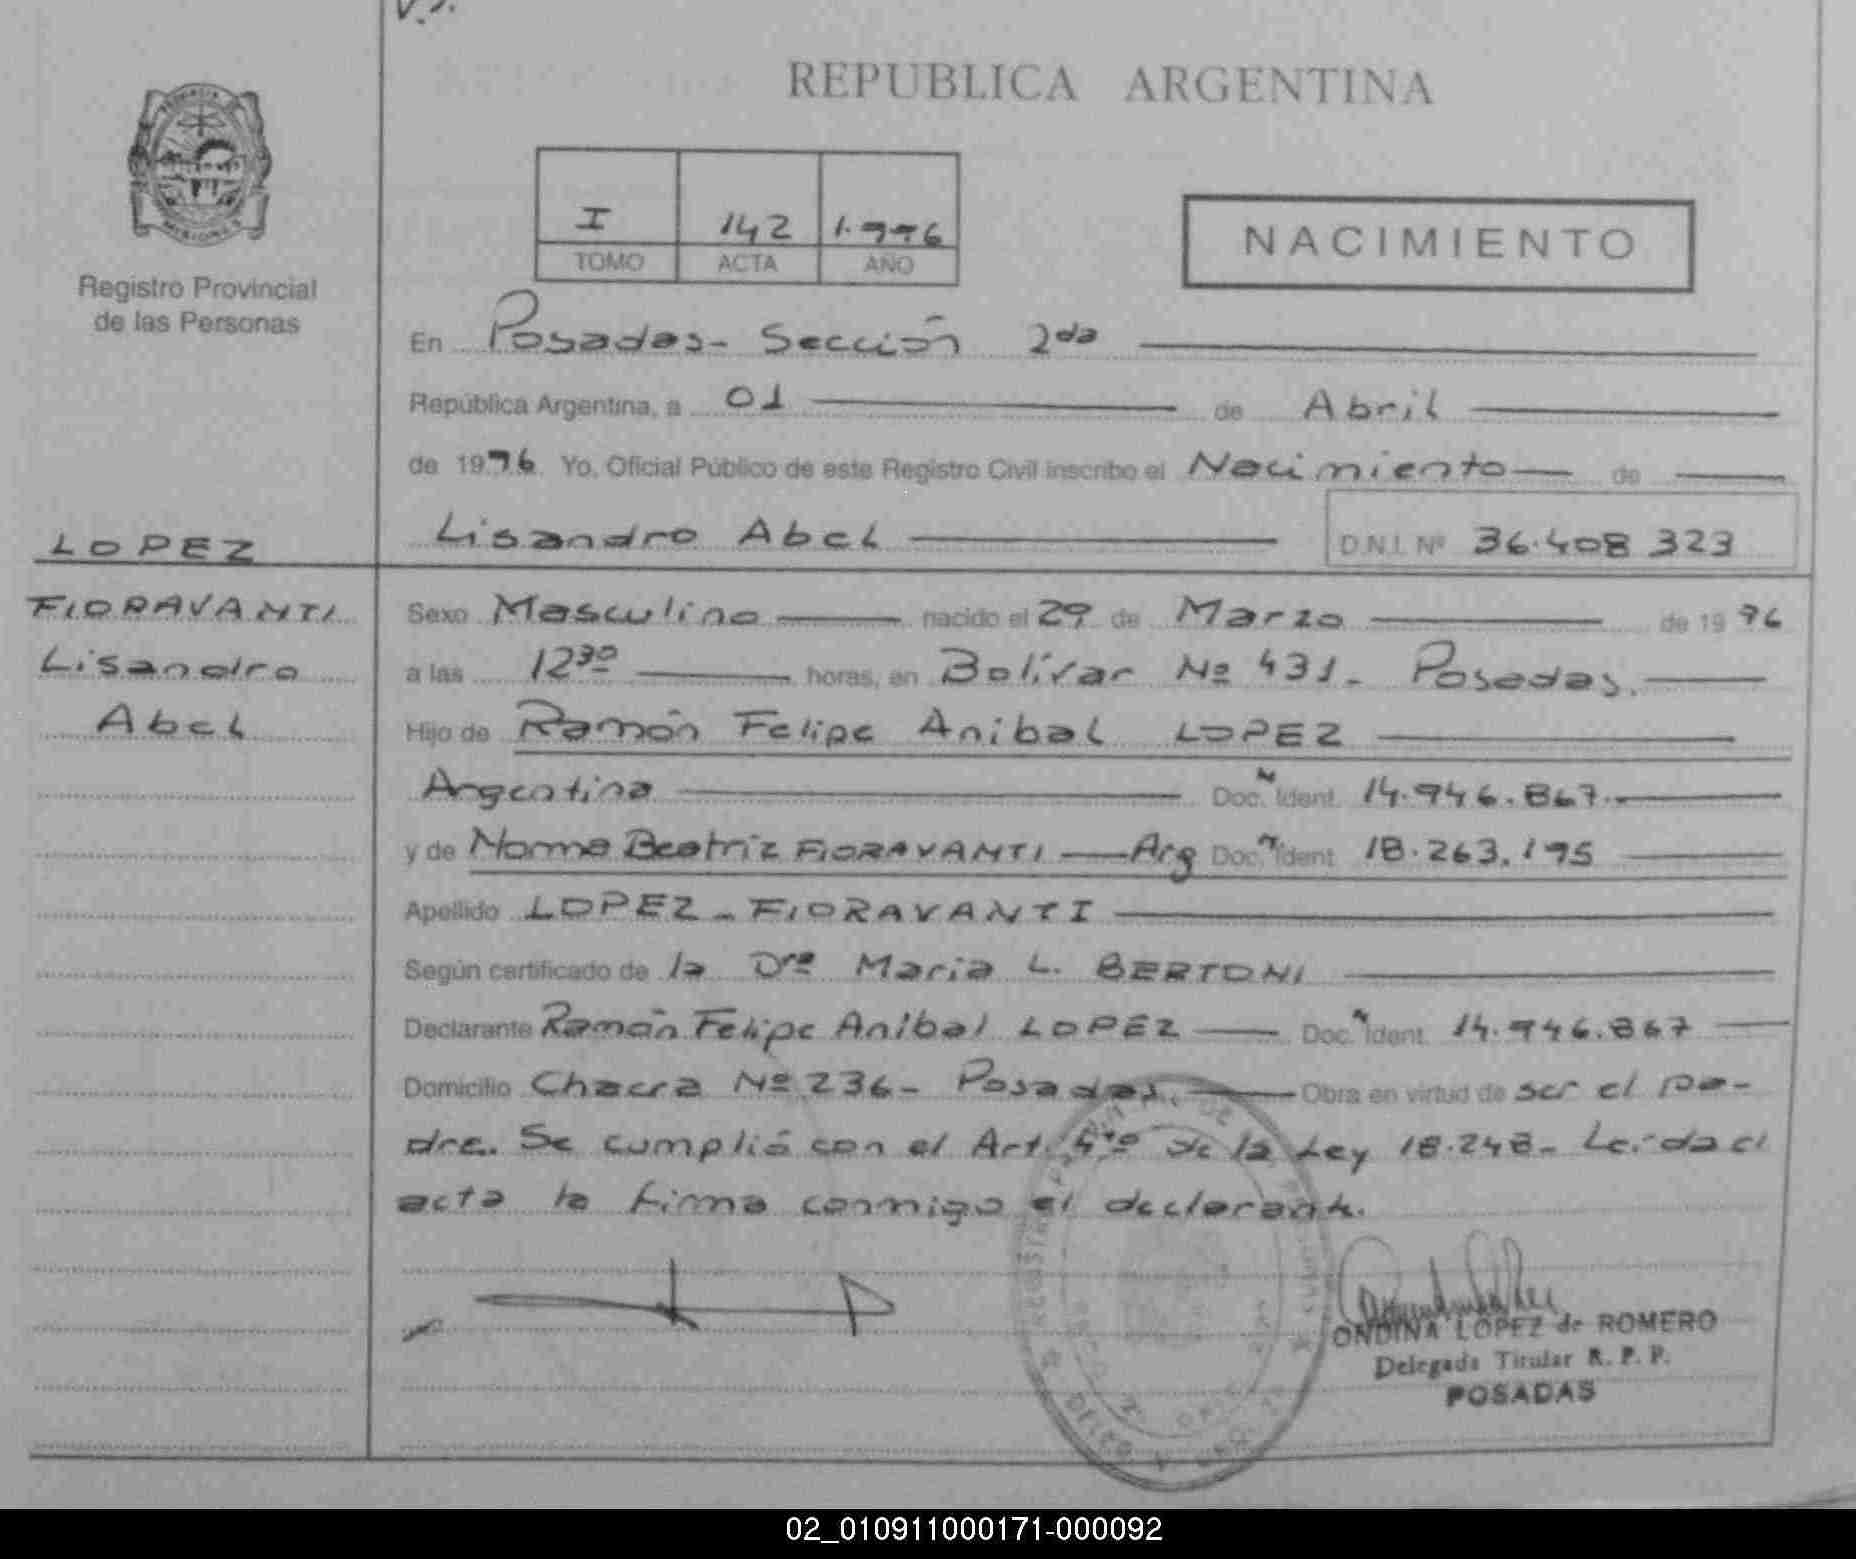 REPUBLICA ARGENTINA
I 142 1.996
TOMO ACTA AÑO
NACIMIENTO
Registro Provincial
de las Personas
En Posadas- Sección 2da
República Argentina, a 01 de Abril
de 1996. Yo, Oficial Público de este Registro Civil inscribo el Nacimiento de
LOPEZ
Lisandro Abel D.N.I. Nº 36.408 323
FIORAVANTI
Lisandro
Abel
Sexo Masculino nacido el 29 de Marzo de 19 96
a las 12³⁰ horas, en Bolívar Nº 431- Posadas.
Hijo de Ramón Felipe Anibal LOPEZ
Argentina Doc. Ident. 14.946.867.-
y de Norma Beatriz FIORAVANTI Arg Doc. Ident. 18.263.195
Apellido LOPEZ - FIORAVANTI
Según certificado de la Dra Maria L. BERTONI
Declarante Ramón Felipe Anibal LOPEZ Doc. Ident. 14.946.867
Domicilio Chacra Nº 236- Posadas. Obra en virtud de ser el pa-
dre. Se cumplió con el Art. 4to de la Ley 18.248- Leída el
acta la firma conmigo el declarante.
ONDINA LOPEZ de ROMERO
Delegada Titular R. P. P.
POSADAS
02_010911000171-000092